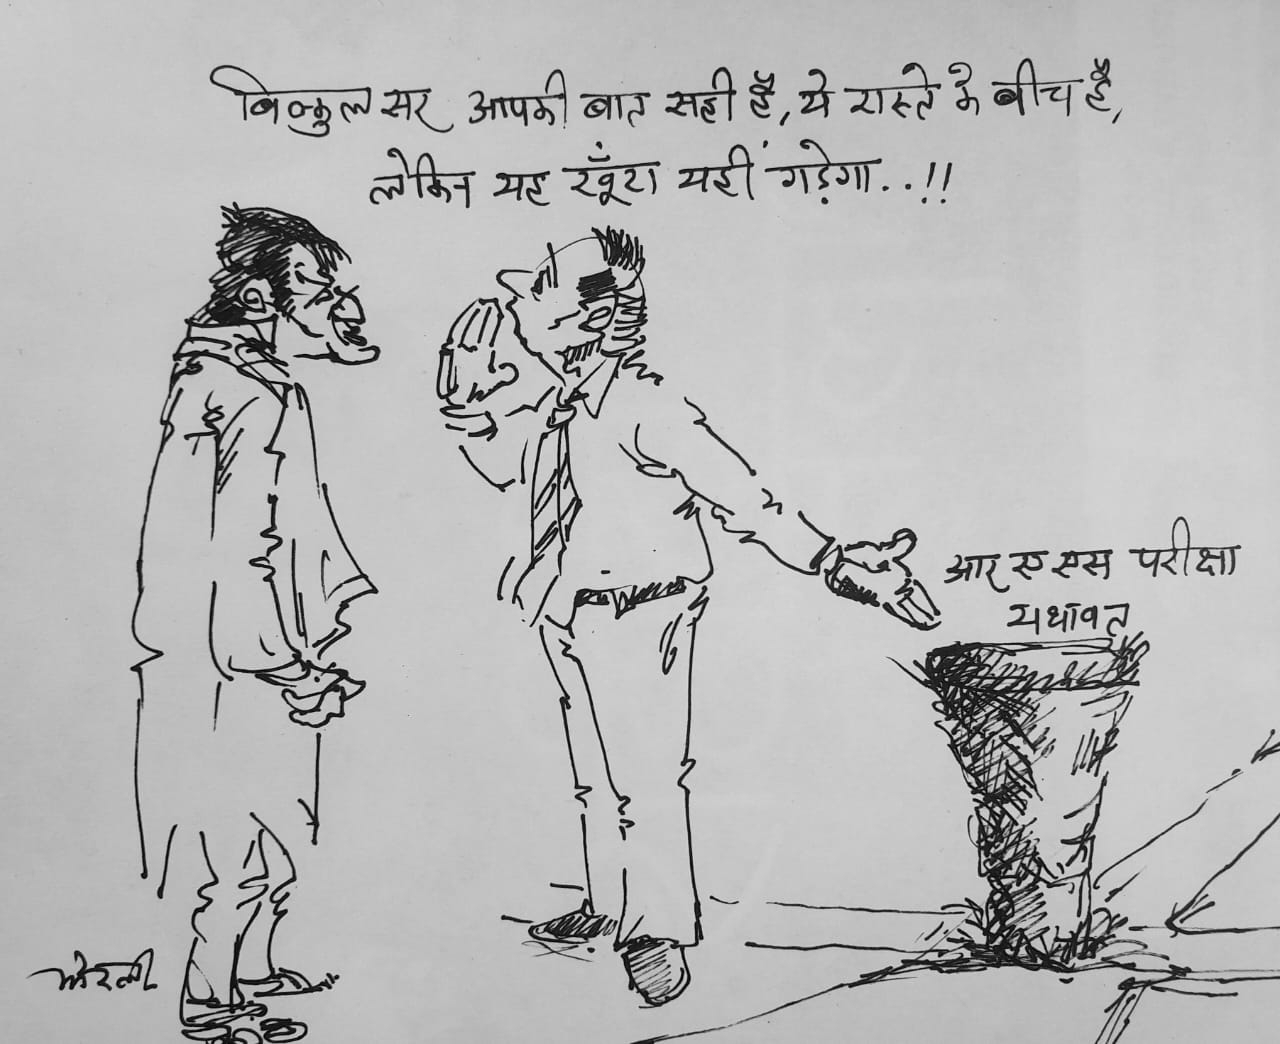 बिल्कुल सर आपकी बात सही है, ये रास्ते के बीच है,
लेकिन यह खूँटा यहीं गड़ेगा..!!
आर ए एस परीक्षा
यथावत